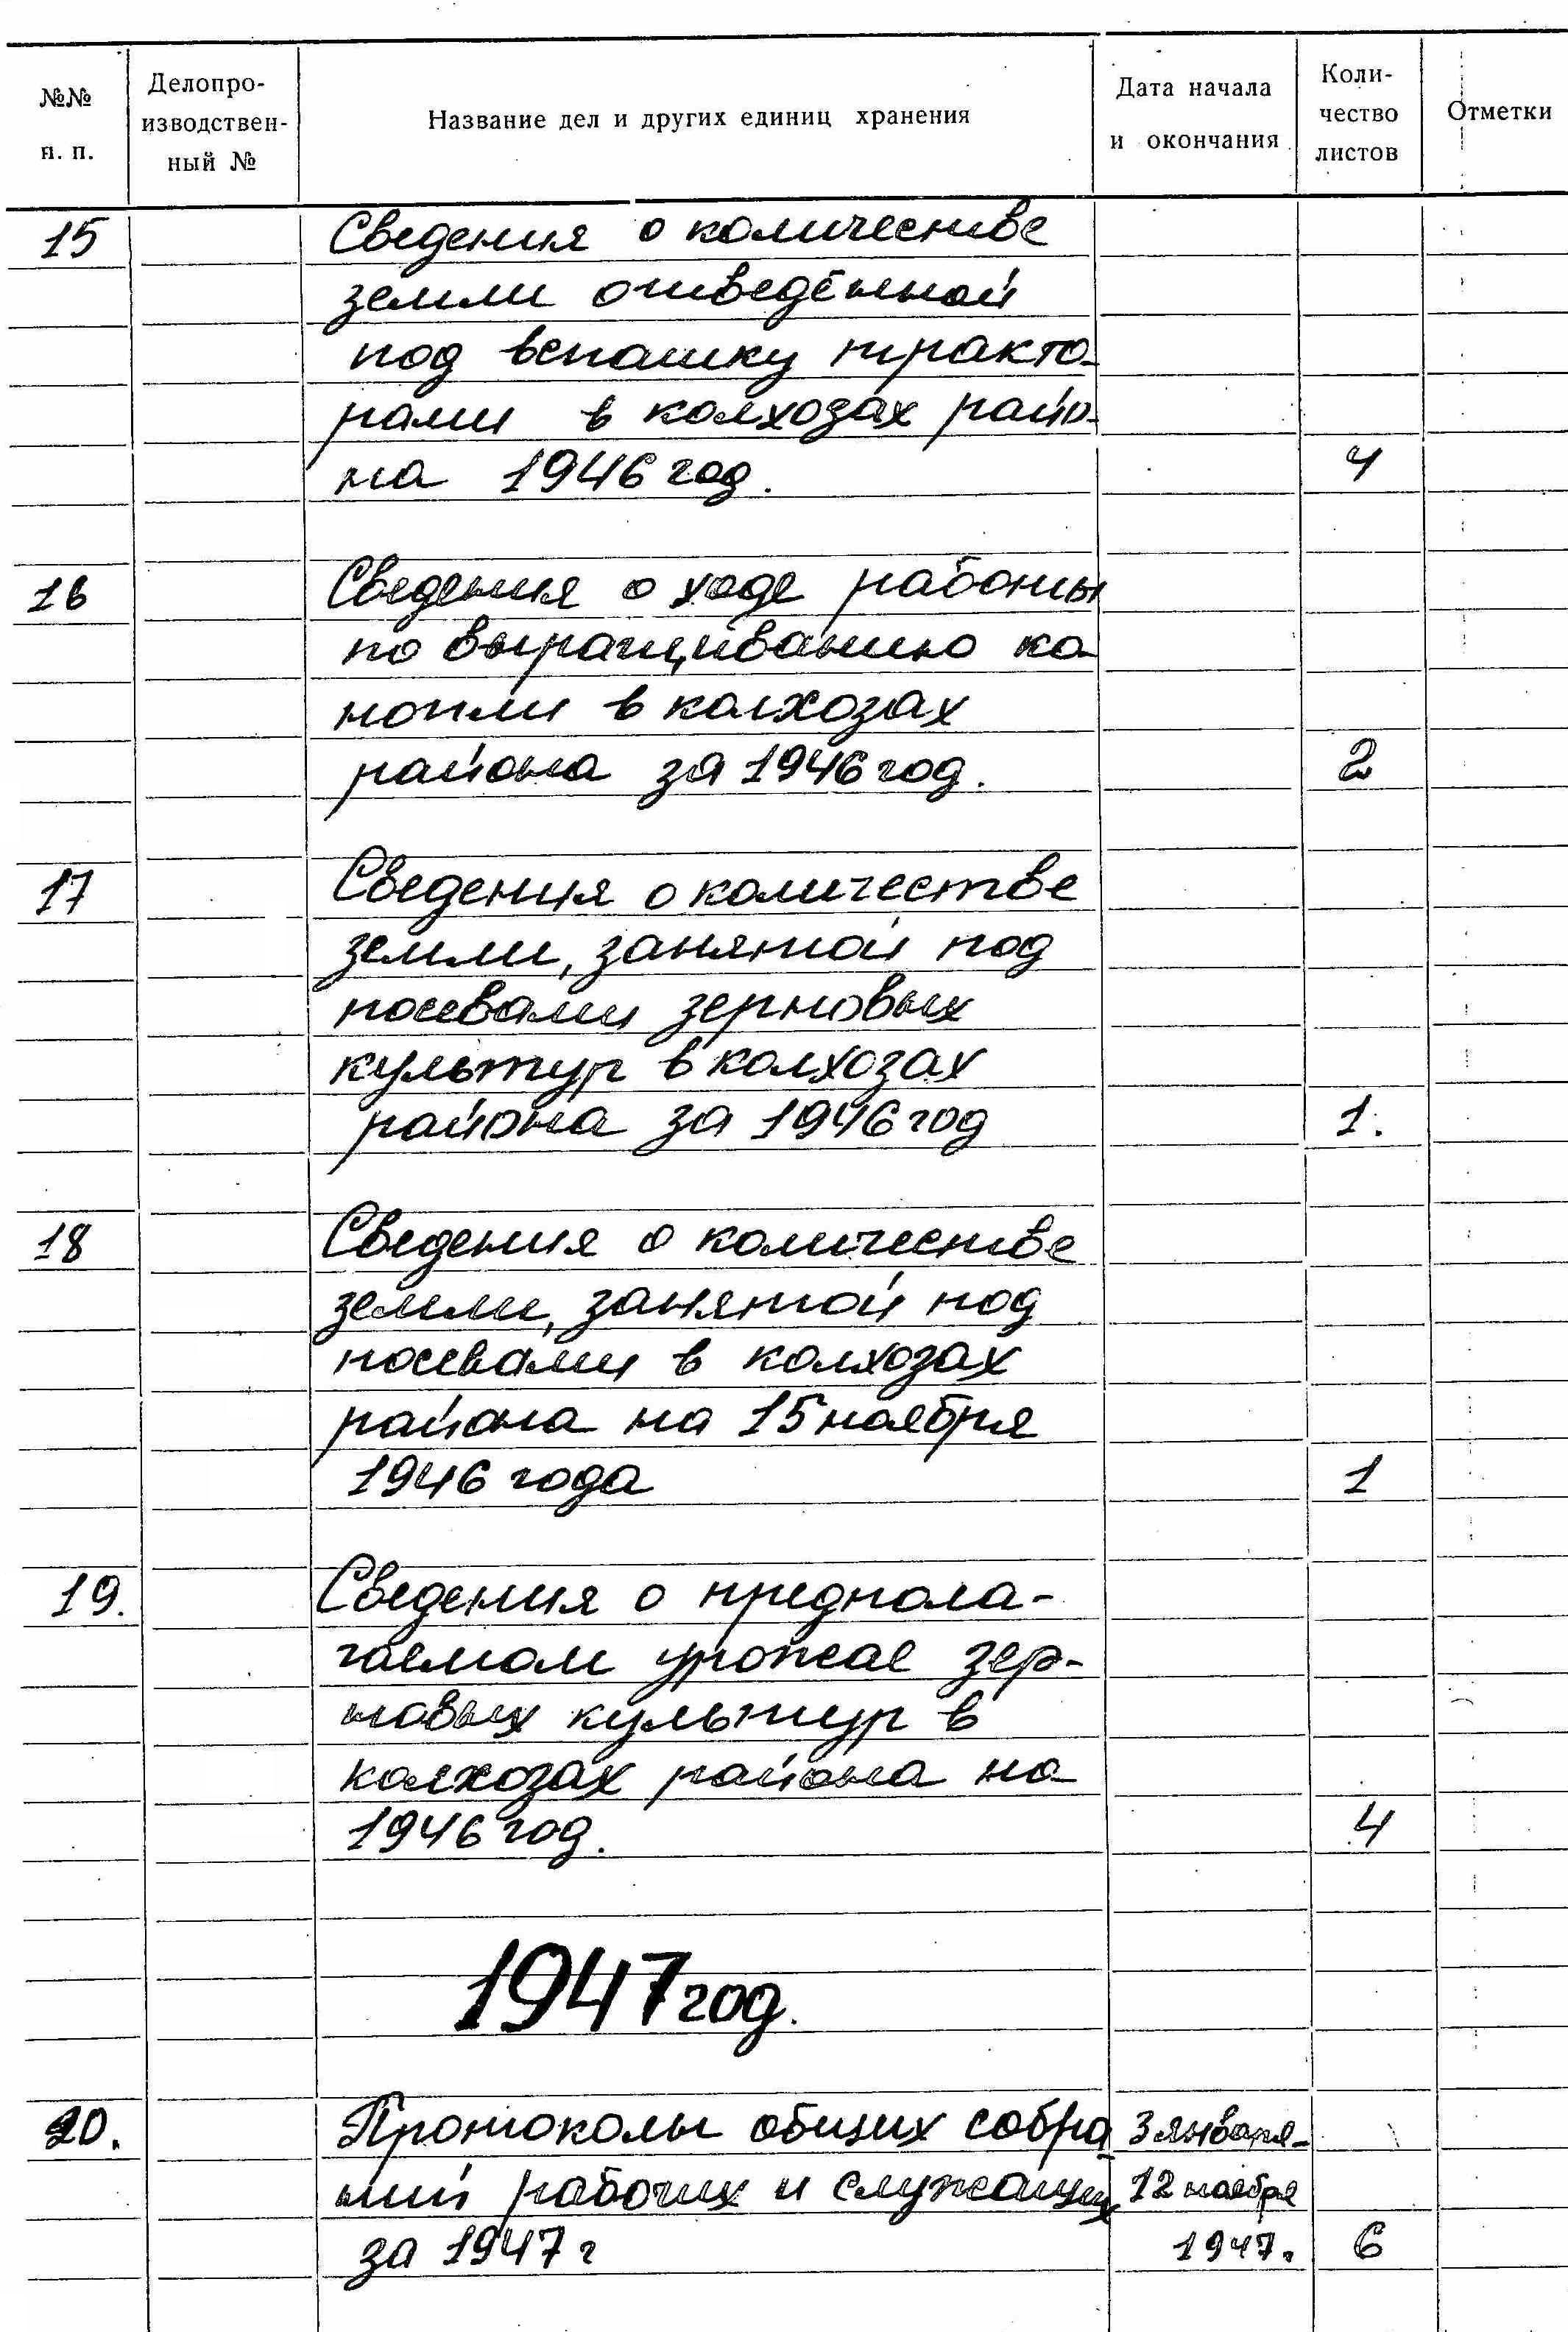 №№
п. п.
Делопро-
изводствен-
ный №
Название дел и других единиц хранения
Дата начала
и окончания
Коли-
чество
листов
Отметки
15
Сведения о количестве
земли отведённой
под вспашку тракто-
рами в колхозах райо-
на 1946 год.
4
16
Сведения о ходе работы
по выращиванию ко-
нопли в колхозах
района за 1946 год.
2
17
Сведения о количестве
земли, занятой под
посевами зерновых
культур в колхозах
района за 1946 год
1.
18
Сведения о количестве
земли, занятой под
посевами в колхозах
района на 15 ноября
1946 года
1
19.
Сведения о предпола-
гаемом урожае зер-
новых культур в
колхозах района на
1946 год.
4
1947 год.
20.
Протоколы общих собра-
ний рабочих и служащих
за 1947 г
3 января-
12 ноября
1947.
6